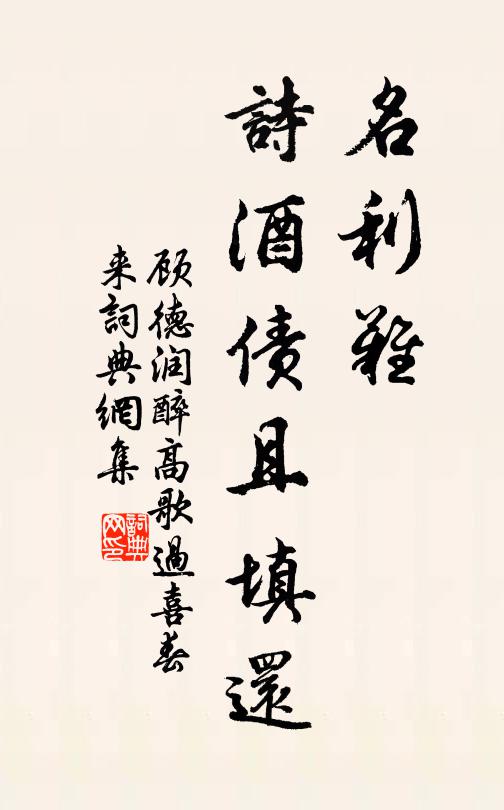 名利難
詩酒債且填還
顾德润醉高歌過喜春
来詞典網集
詞典
网印